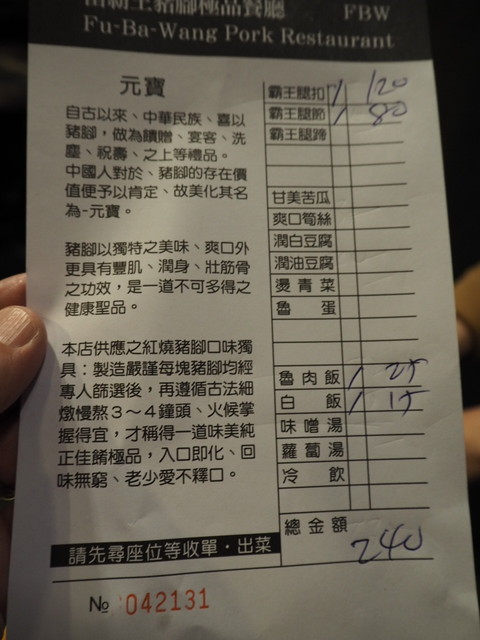 富霸王豬腳極品餐廳 FBW
Fu-Ba-Wang Pork Restaurant
元寶
自古以來、中華民族、喜以
豬腳，做為饋贈、宴客、洗
塵、祝壽、之上等禮品。
中國人對於、豬腳的存在價
值便予以肯定、故美化其名
為-元寶。
豬腳以獨特之美味、爽口外
更具有豐肌、潤身、壯筋骨
之功效，是一道不可多得之
健康聖品。
本店供應之紅燒豬腳口味獨
具：製造嚴謹每塊豬腳均經
專人篩選後，再遵循古法細
燉慢熬3～4鐘頭、火候掌
握得宜，才稱得一道味美純
正佳餚極品，入口即化、回
味無窮、老少愛不釋口。
請先尋座位等收單・出菜
№ 042131
霸王腿扣 / 120
霸王腿節 / 80
霸王腿蹄
甘美苦瓜
爽口筍絲
潤白豆腐
潤油豆腐
燙青菜
魯蛋
魯肉飯 / 25
白飯 / 15
味噌湯
蘿蔔湯
冷飲
總金額
240